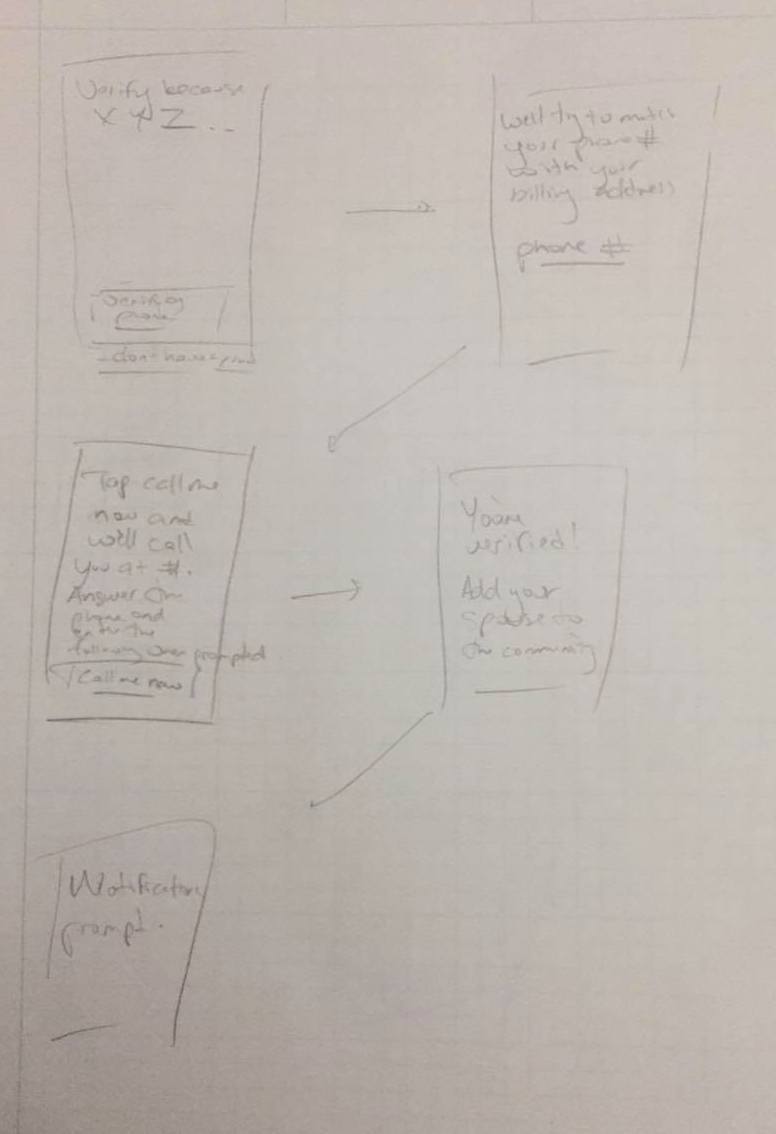 Verify because
X Y Z ...
Verify
phone
don't have a
We'll try to match
your phone #
with your
billing address
phone #
Tap call me
now and
we'll call
you at #.
Answer the
phone and
enter the
following when prompted
Call me now
You're
verified!
Add your
spouse to
the community
Notifications
prompt.